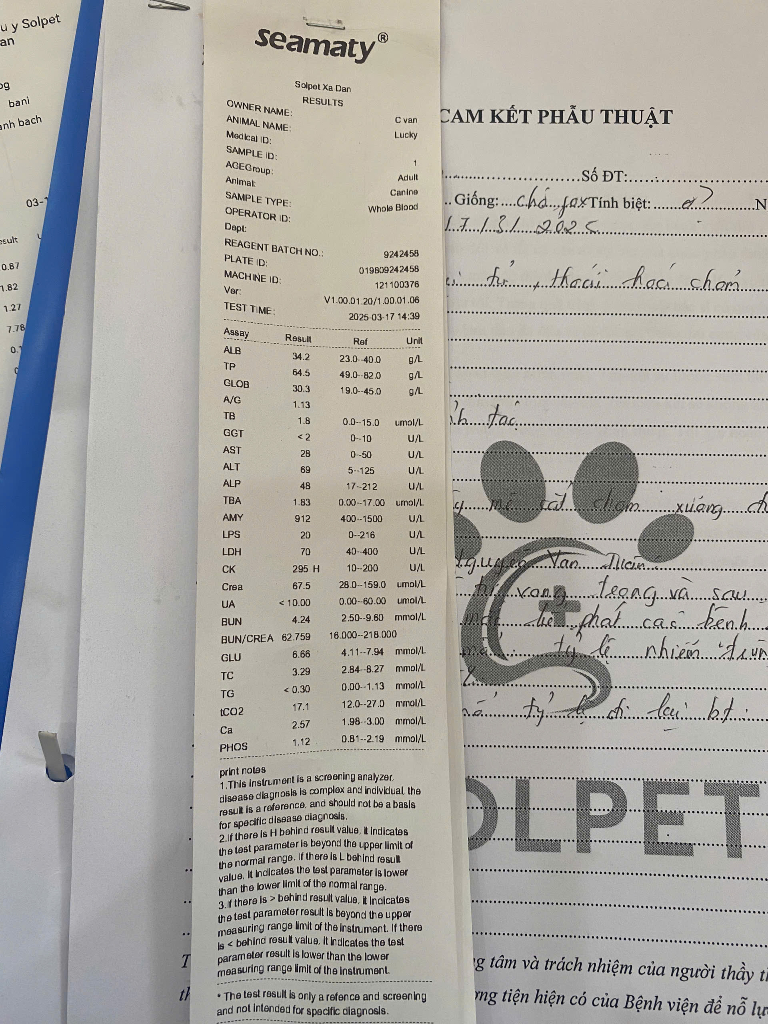 u y Solpet
an
og
bani
anh bach
03-1
esult
0.67
1.82
1.27
7.78
0.1
seamaty®
Solpet Xa Dan
RESULTS
OWNER NAME: C van
ANIMAL NAME: Lucky
Medical ID:
SAMPLE ID: 1
AGEGroup: Adult
Animal: Canine
SAMPLE TYPE: Whole Blood
OPERATOR ID:
Dept:
REAGENT BATCH NO.: 9242458
PLATE ID: 019809242458
MACHINE ID: 121100376
Ver: V1.00.01.20/1.00.01.06
TEST TIME: 2025-03-17 14:39
Assay Result Ref Unit
ALB 34.2 23.0--40.0 g/L
TP 64.5 49.0--82.0 g/L
GLOB 30.3 19.0--45.0 g/L
A/G 1.13
TB 1.8 0.0--15.0 umol/L
GGT < 2 0--10 U/L
AST 28 0--50 U/L
ALT 69 5--125 U/L
ALP 48 17--212 U/L
TBA 1.83 0.00--17.00 umol/L
AMY 912 400--1500 U/L
LPS 20 0--216 U/L
LDH 70 40--400 U/L
CK 295 H 10--200 U/L
Crea 67.5 28.0--159.0 umol/L
UA < 10.00 0.00--60.00 umol/L
BUN 4.24 2.50--9.60 mmol/L
BUN/CREA 62.759 16.000--218.000
GLU 6.66 4.11--7.94 mmol/L
TC 3.29 2.84--8.27 mmol/L
TG < 0.30 0.00--1.13 mmol/L
tCO2 17.1 12.0--27.0 mmol/L
Ca 2.57 1.98--3.00 mmol/L
PHOS 1.12 0.81--2.19 mmol/L
print notes
1.This instrument is a screening analyzer,
disease diagnosis is complex and individual, the
result is a reference, and should not be a basis
for specific disease diagnosis.
2.If there is H behind result value, it indicates
the test parameter is beyond the upper limit of
the normal range. If there is L behind result
value, it indicates the test parameter is lower
than the lower limit of the normal range.
3.If there is > behind result value, it indicates
the test parameter result is beyond the upper
measuring range limit of the instrument. If there
is < behind result value, it indicates the test
parameter result is lower than the lower
measuring range limit of the instrument.
* The test result is only a refence and screening
and not intended for specific diagnosis.
CAM KẾT PHẪU THUẬT
Số ĐT:
Giống: chó fox Tính biệt: ♂ N
17/3/2025
tử, thoái hoá chỏm
tác
mê cắt chỏm xương
Nguyễn Văn
tử vong trong và sau
phát các bệnh
tỷ lệ nhiễm trùn
tỷ lệ đi lại bt.
OLPET
T
th
ng tâm và trách nhiệm của người thầy th
ơng tiện hiện có của Bệnh viện để nỗ lự